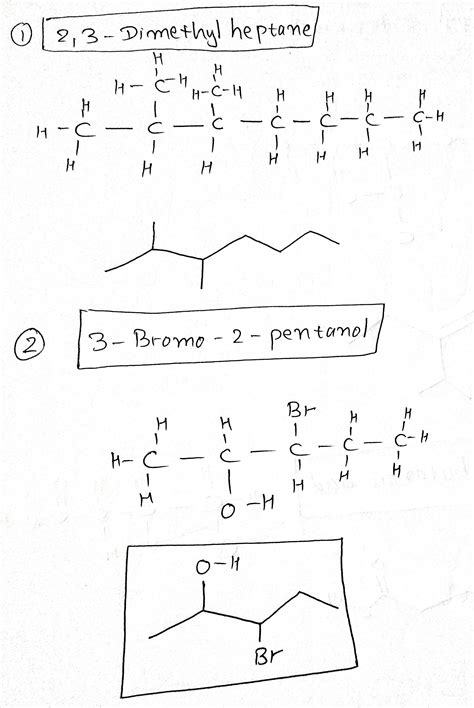 ① 2,3-Dimethyl heptane
H
H-C-H H H-C-H H H H H
H-C-C-C-C-C-C-C-H
H H H H H H H
② 3-Bromo-2-pentanol
H H Br H H
H-C-C-C-C-C-H
H O-H H H H
O-H
Br